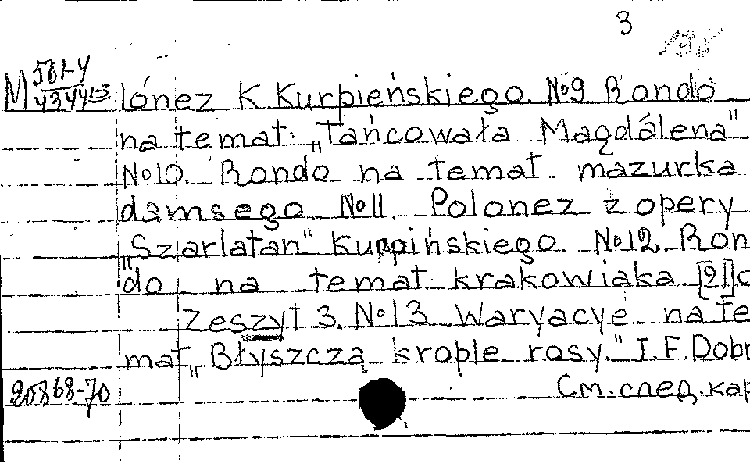 3
198
M 561-4
43443 lónez K. Kurpieńskiego. №9 Rondo
na temat: „Tańcowała Magdálena"
№10. Rondo na temat mazurka
damsego №11. Polonez z opery
„Szarlatan" Kurpińskiego. №12. Ron
do na temat krakowiaka [21] c
Zeszyt 3. №13 Waryacye na te
mat „Błyszczą krople rosy." I.F.Dobr
20868-70 См. след. кар